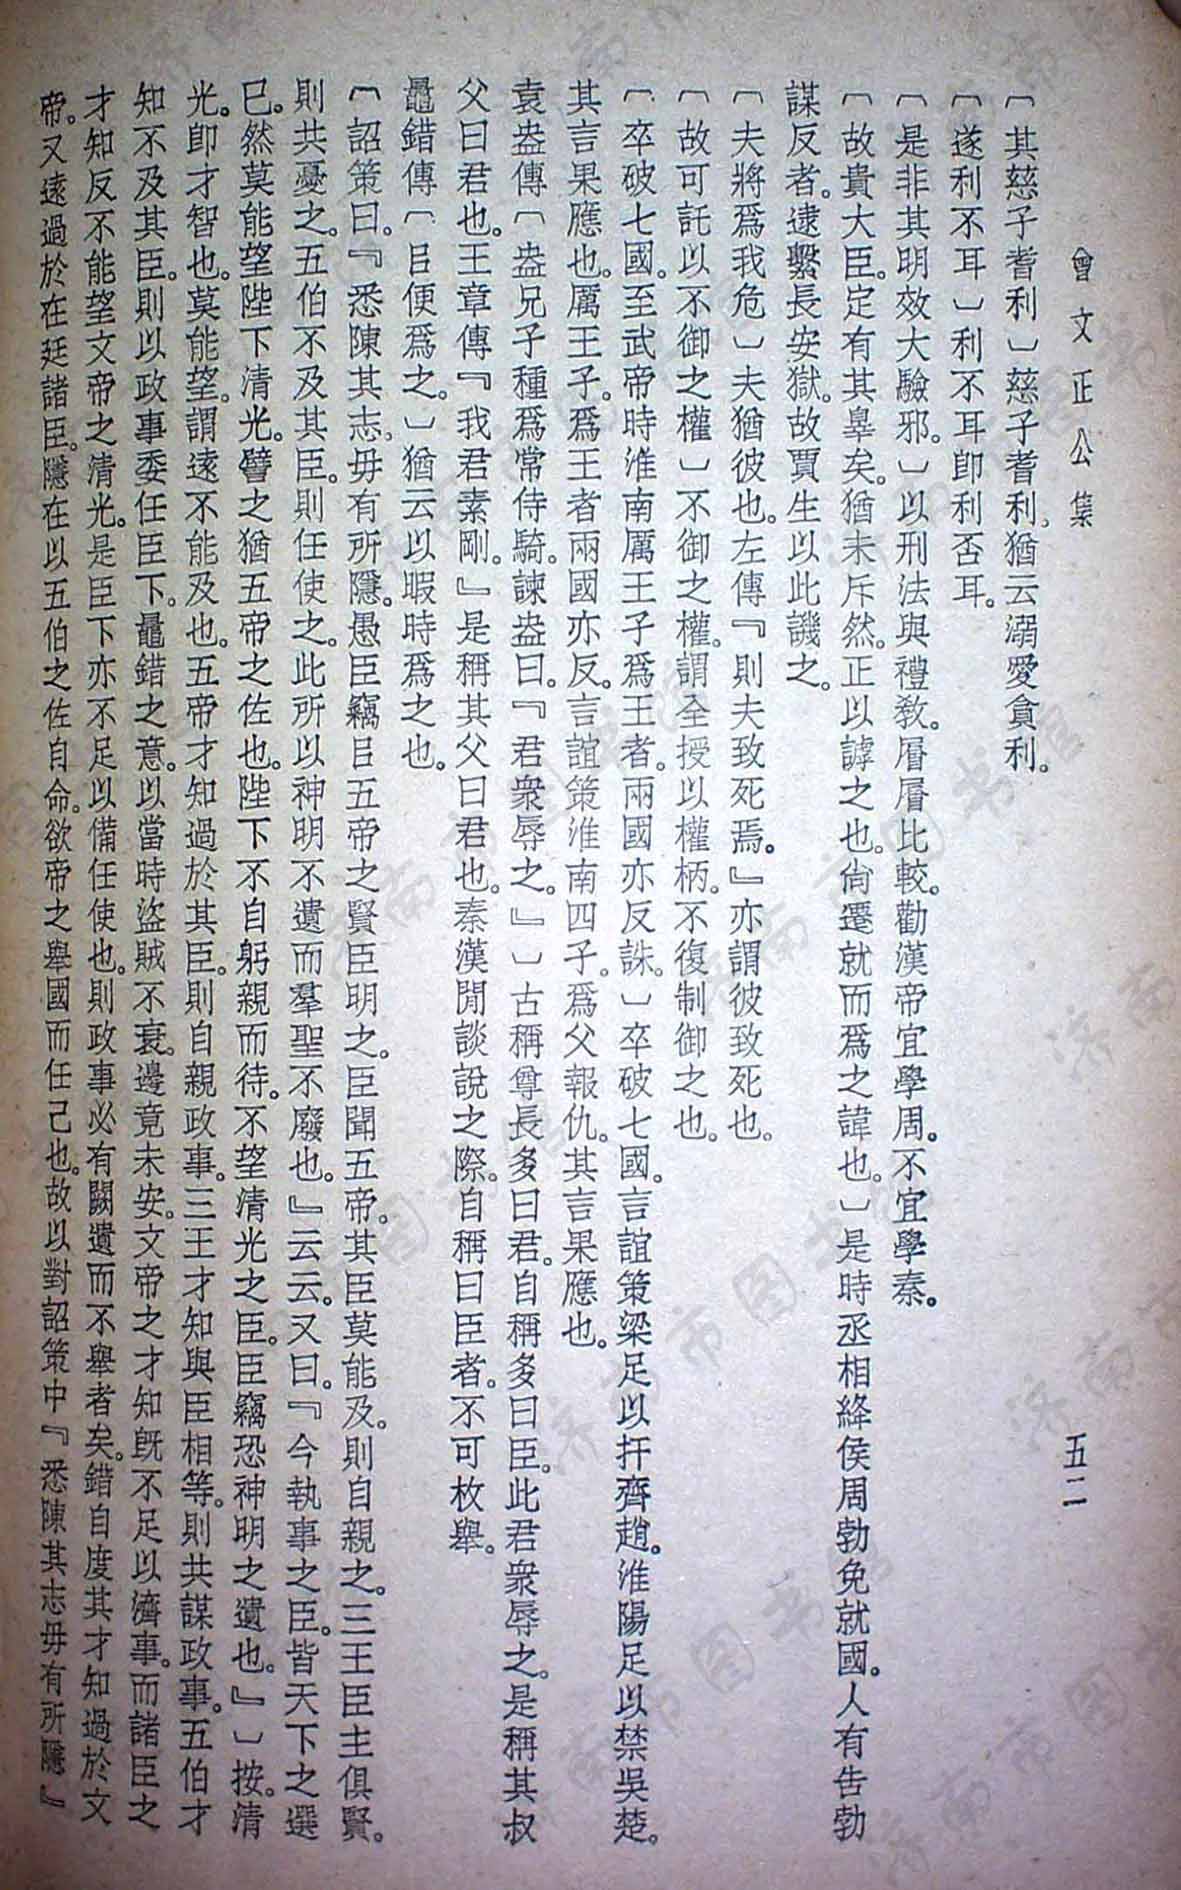 曾文正公集　五二
〔其慈子耆利〕慈子耆利。猶云溺愛貪利。
〔遂利不耳〕利不耳卽利否耳。
〔是非其明效大驗邪。〕以刑法與禮敎。層層比較。勸漢帝宜學周。不宜學秦。
〔故貴大臣。定有其辠矣。猶未斥然。正以謼之也。尙遷就而爲之諱也。〕是時丞相絳侯周勃免就國。人有告勃
謀反者。逮繫長安獄。故賈生以此譏之。
〔夫將爲我危〕夫猶彼也。左傳『則夫致死焉。』亦謂彼致死也。
〔故可託以不御之權〕不御之權。謂全授以權柄。不復制御之也。
〔卒破七國。至武帝時淮南厲王子爲王者。兩國亦反誅。〕卒破七國。言誼策梁足以扞齊趙。淮陽足以禁吳楚。
其言果應也。厲王子。爲王者兩國亦反。言誼策淮南四子。爲父報仇。其言果應也。
袁盎傳〔盎兄子種爲常侍騎。諫盎曰。『君衆辱之。』〕古稱尊長多曰君。自稱多曰臣。此君衆辱之。是稱其叔
父曰君也。王章傳『我君素剛。』是稱其父曰君也。秦漢閒談說之際。自稱曰臣者。不可枚舉。
鼂錯傳〔㠯便爲之。〕猶云以暇時爲之也。
〔詔策曰。『悉陳其志。毋有所隱。愚臣竊㠯五帝之賢臣明之。臣聞五帝。其臣莫能及。則自親之。三王臣主俱賢。
則共憂之。五伯不及其臣。則任使之。此所以神明不遺而羣聖不廢也。』云云。又曰。『今執事之臣。皆天下之選
已。然莫能望陛下淸光。譬之猶五帝之佐也。陛下不自躬親而待。不望淸光之臣。臣竊恐神明之遺也。』〕按。淸
光。卽才智也。莫能望。謂遠不能及也。五帝才知過於其臣。則自親政事。三王才知與臣相等。則共謀政事。五伯才
知不及其臣。則以政事委任臣下。鼂錯之意。以當時盜賊不衰。邊竟未安。文帝之才知旣不足以濟事。而諸臣之
才知反不能望文帝之淸光。是臣下亦不足以備任使也。則政事必有闕遺而不舉者矣。錯自度其才知過於文
帝。又遠過於在廷諸臣。隱在以五伯之佐自命。欲帝之舉國而任己也。故以對詔策中『悉陳其志毋有所隱』